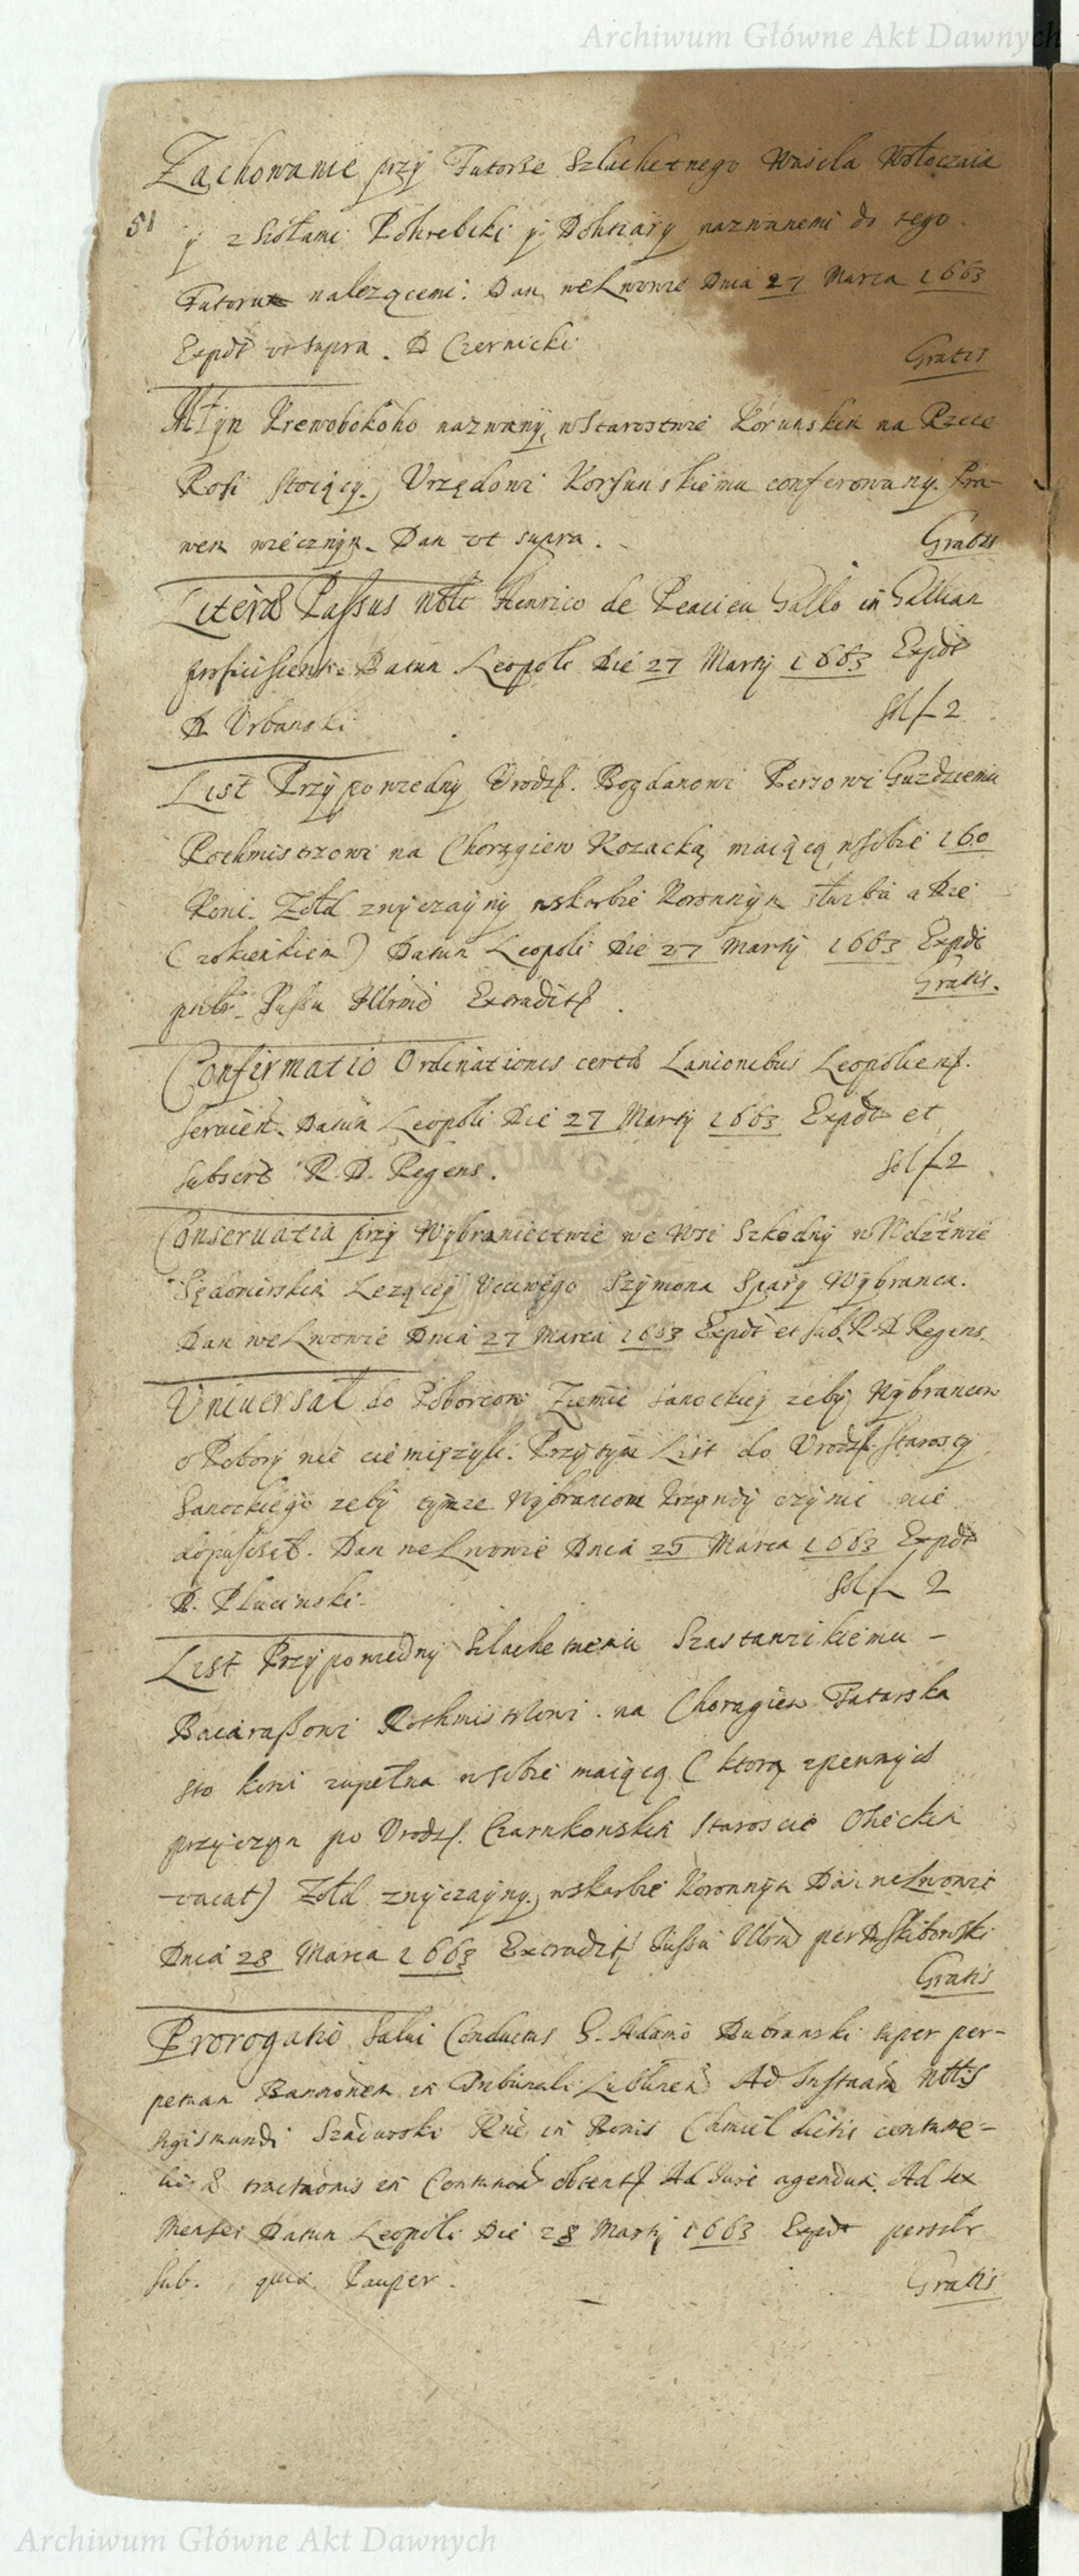 Archiwum Główne Akt Dawnych
Zachowanie przy Futorze Szlachetnego Wasila Wołoczaia
51
y z Siołami Pohrebeki y Dohnary nazwanemi do tego
Futoru należącemi. Dan we Lwowie Dnia 27 Marca 1663
Expdt ut supra. D Czernicki
Gratis
Młyn Krewobokoho nazwany, w Starostwie Korsunskim na Rzece
Rosi stoiący, Urzędowi Korsunskiemu conferowany. Pra-
wem wiecznym. Dan ut supra.
Gratis
Literae Passus Nbli Henrico de Gallo in Galliam
proficiscenti. Datum Leopoli Die 27 Martij 1663 Expdt
D. Urbanski
Sol f 2
List Przypowiedny Urodz. Bogdanowi Persowi Gurdziemu
Rothmistrzowi na Chorągiew Kozacką maiącą w sobie 160
Koni. Żołd zwyczayny w skarbie Koronnym służba a Die
( ) Datum Leopoli Die 27 Martij 1663 Expdt
Gratis.
Jussu Illrmi Extradit
Confirmatio Ordinationis certae Lanionibus Leopoliens.
servien. Datum Leopoli Die 27 Martij 1663 Expdt et
Subscrt R. D. Regens.
Sol f 2
Conservatia przy Wybraniectwie we Wsi Szkodny w Wdztwie
Sędomirskim Leżącey Uczciwego Szymona Spary Wybranca.
Dan we Lwowie Dnia 27 Marca 1663 Expdt et sub. R. D Regens
Uniuersał do Poborcow Ziemie Sanockiey zeby Wybrancow
o Pobory nie ciemiężyli. Przytym List do Urodz. Starosty
Sanockiego zeby tymze Wybrancom krzywdy czynic nie
dopuscił. Dan we Lwowie Dnia 25 Marca 1663 Expdt
D. Plucinski.
Sol f 2
List Przypowiedny Szlachetnemu Szastanzikiemu -
Rothmistrzowi na Chorągiew Tatarska
sto koni zupełna w sobie maiącą ( ktora z pewnych
przyczyn po Urodz. Czarnkowskim Staroscie Osieckim
vacat) Żołd zwyczayny w skarbie Koronnym Dan we Lwowie
Dnia 28 Marca 1663 Extradit Jussu Illrmi per D. Skibowski
Gratis
Prorogatio Salvi Conductus G. Adamo Dubrawski super per-
petuam Bannionem in Tribunali Lublinen Ad Instantiam Nblis
Sigismundi Szadurski in Bonis Chmiel dictis contume-
Ad Jure agendum. Ad sex
Menses Datum Leopoli Die 28 Martij 1663 Expdt
Sub. quia Pauper.
Gratis
Archiwum Główne Akt Dawnych